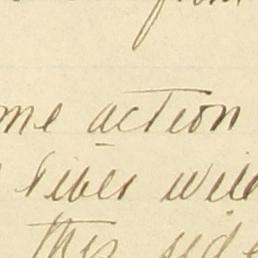 me action
lives will
this side